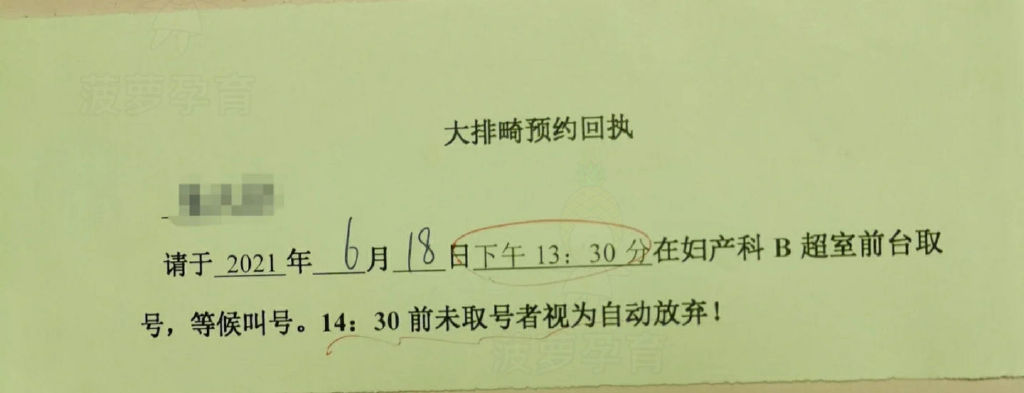 菠萝孕育
大排畸预约回执
请于 2021 年 6 月 18 日下午 13：30 分在妇产科 B 超室前台取
号，等候叫号。14：30 前未取号者视为自动放弃！
菠萝孕育